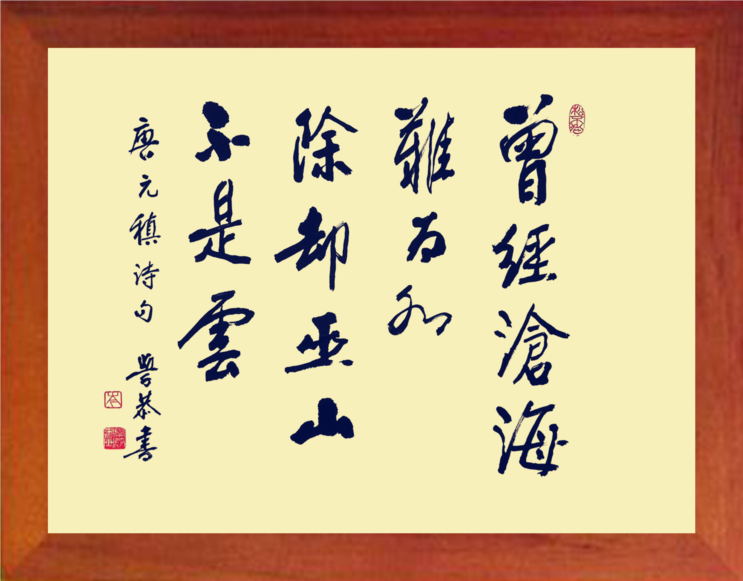 曾經滄海
難為水
除却巫山
不是雲
唐元稹诗句 學恭书